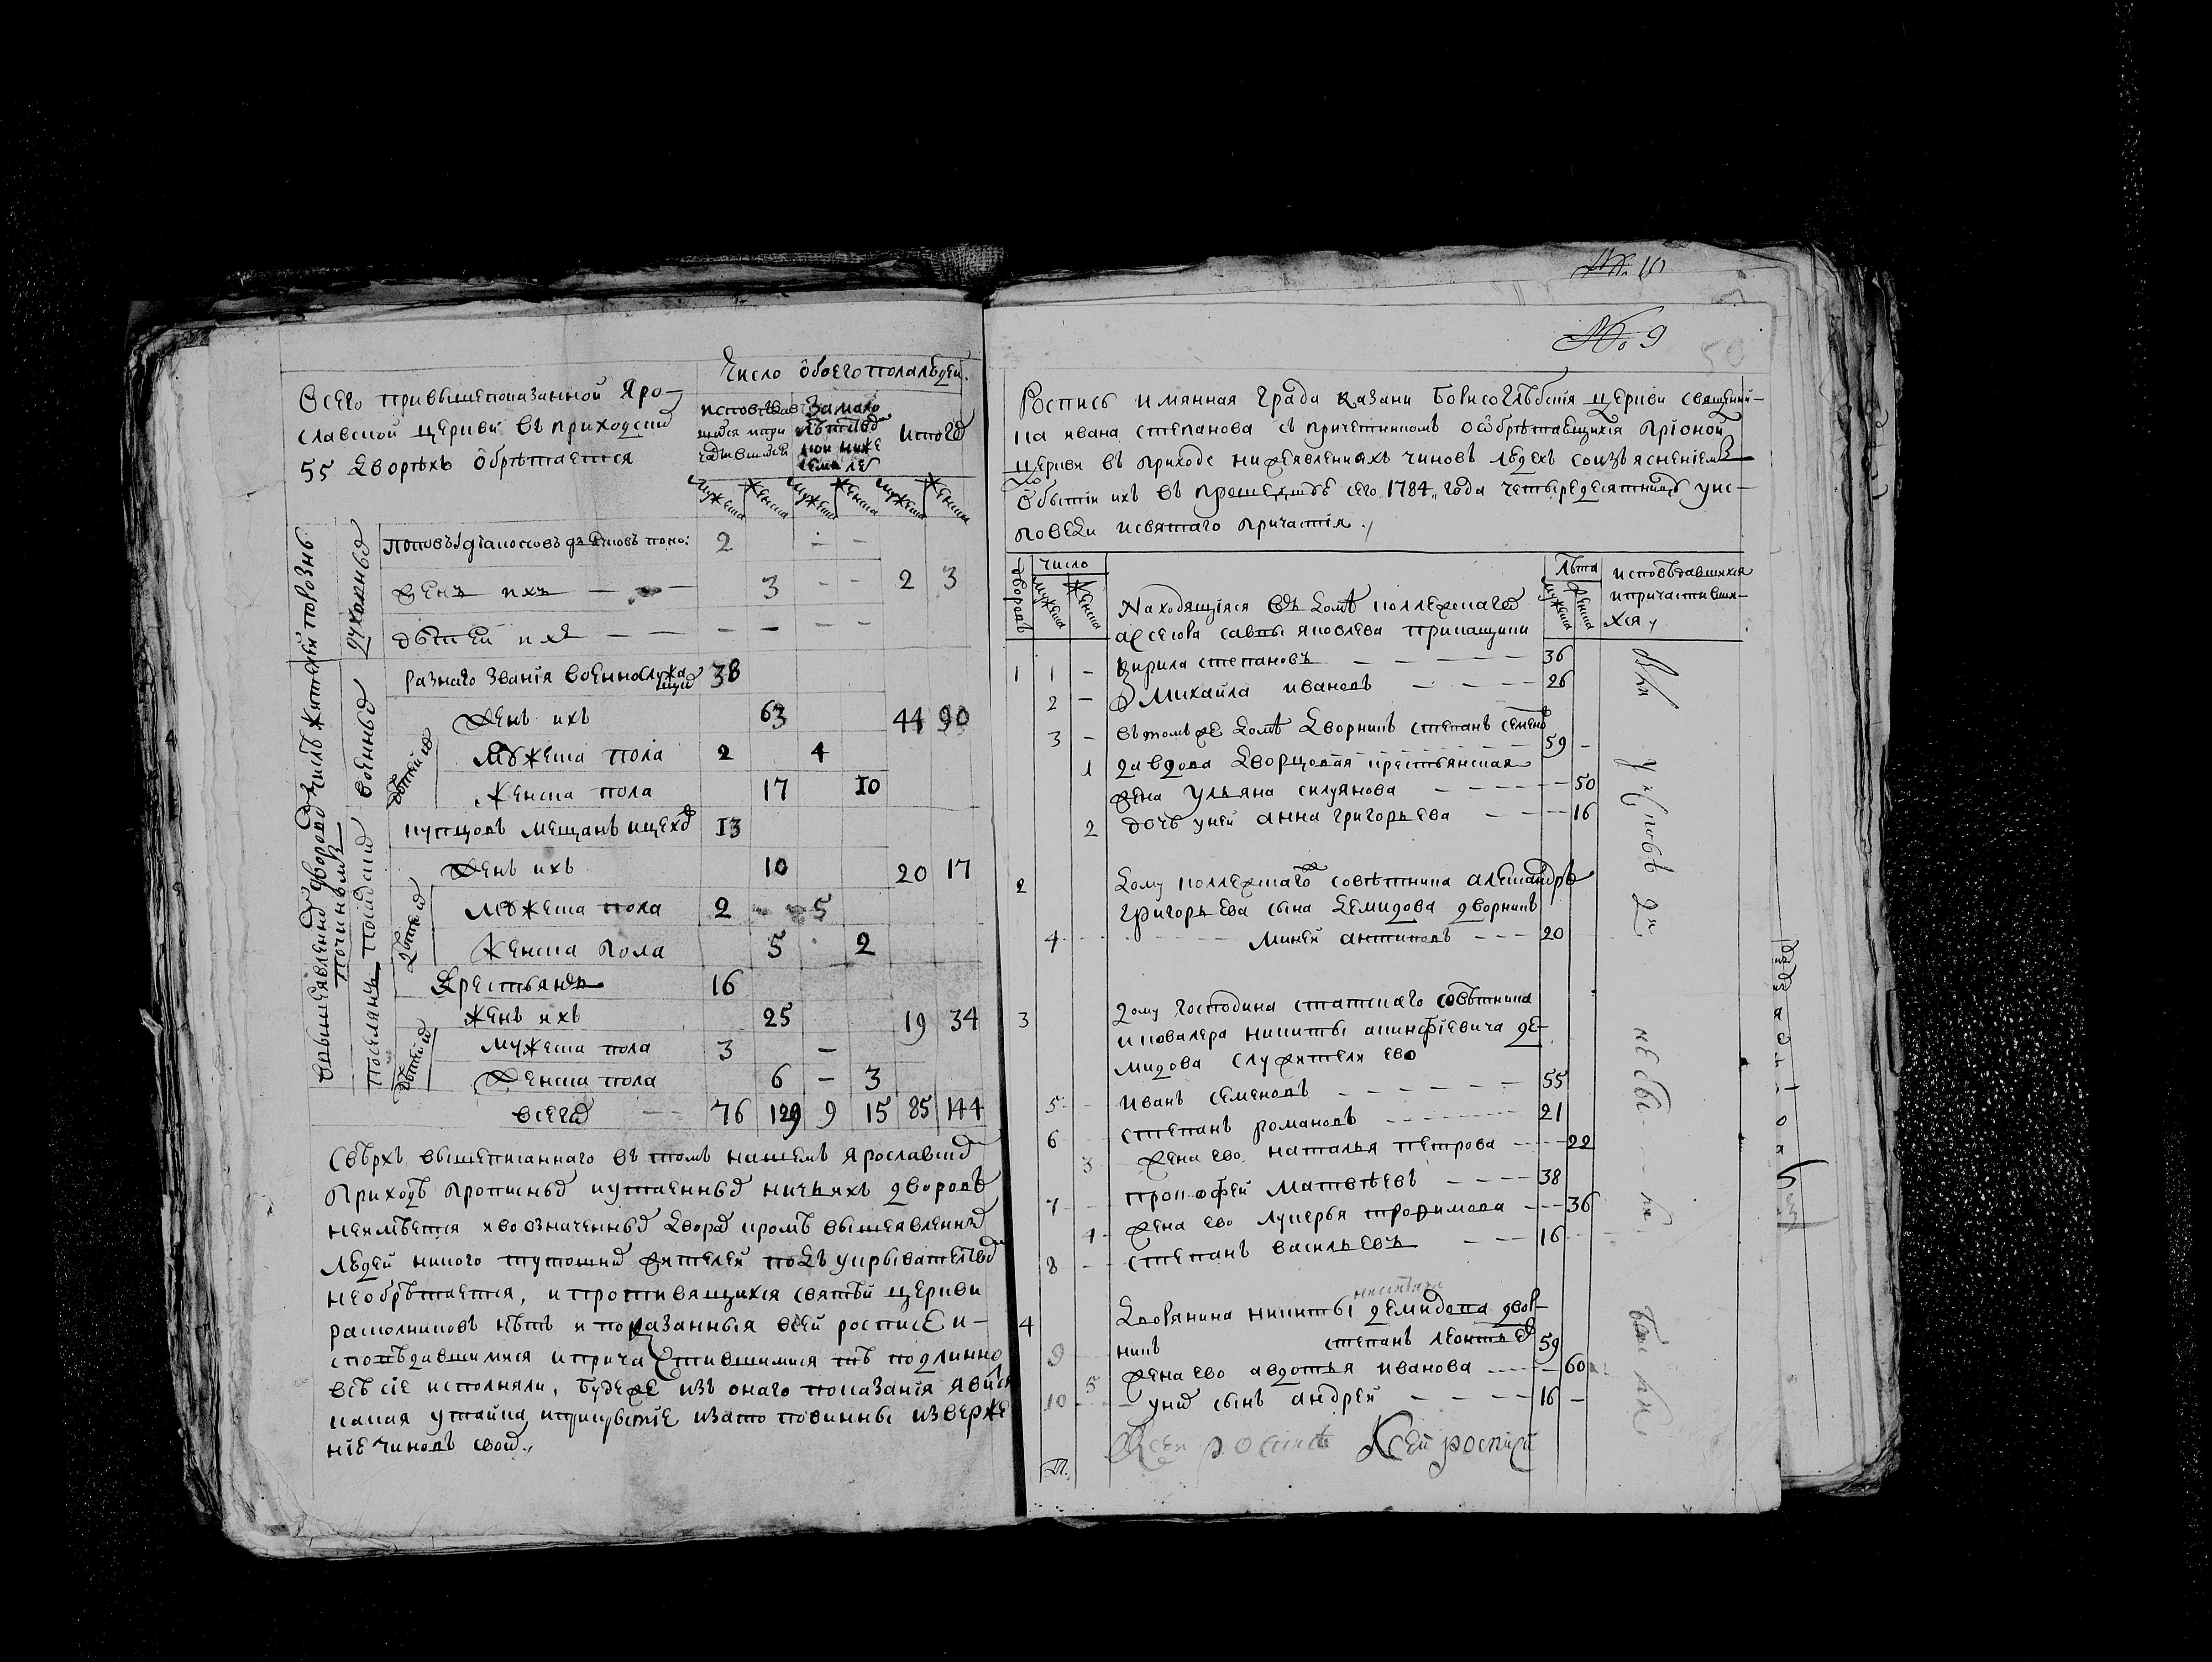 Всего при вышепоказанной Яро-
славской церкви в приходских
55 дворѣхъ обрѣтается
Число обоего пола людей.
исповѣдав
шихся и при
За мало
лѣтством
Итого
мужеска
женска
мужеска
женска
мужеска
женска
духовныхъ
поповъ діаконовъ дьячковъ поно: 2 - -
женъ ихъ — — 3 - - 2 3
дѣтей ихъ — — - - - -
военныхъ
разнаго званія военнослужа
щихъ 38
женъ ихъ 63 44 90
дѣтей ихъ
мужеска пола 2 4
женска пола 17 10
посадских
купцовъ мещанъ и цехов 13
женъ ихъ 10 20 17
дѣтей ихъ
мужеска пола 2 - - 5
женска пола 5 2
поселянъ
крестьянъ 16
женъ ихъ 25 19 34
дѣтей ихъ
мужеска пола 3 —
женска пола 6 — 3
всего — 76 129 9 15 85 144
Сверхъ вышеписаннаго въ томъ нашемъ Ярославском
приходѣ прописныхъ и утаенныхъ ничьихъ дворовъ
неимѣется и во означенных дворах кромѣ вышеявленных
людей никого тутошних жителей подъ укрывательством
необрѣтается, и противящихся святѣй церкви
раскольниковъ нѣтъ и показанныя в сей росписи и-
споведавшимися и причастившимися тѣ подлинно
всѣ сіе исполняли, буде же изъ онаго показанія явится
какая утайка и прикрытіе и за то повинны изверже
нію чиновъ своих.,
№ 10
№ 9
50
Роспись имянная града казани Борисоглѣбскія церкви священни-
ка ивана степанова съ причетниkомъ о обрѣтающихся при оной
церкви въ приходе нижеявленныхъ чиновъ людехъ со изъясненіемъ
о бытіи ихъ въ прошедшую сего 1784,, года четыредесятницу у ис-
поведи и святаго причастія.,
дворовъ
число
мужеска
женска
лѣта
мужеска
женска
исповѣдавшихся
и причастивши-
хся,
Находящіяся въ домѣ коллежскаго
асесора савы яковлева прикащики
1 1 - кирила степановъ — — — — 36
2 - михайла ивановъ — - — - 26
3 - въ томъ же домѣ дворникъ степанъ семенов
59 -
1 да вдова дворцовая крестьянская
жена ульяна силуянова — - - - - 50
2 дочь у ней анна григорьева — — — 16
2 дому коллежскаго советника александра
григорьева сына демидова дворникъ
4 миней антиповъ - - - 20
3 дому господина статскаго совѣтника
и ковалера никиты акинфіевича де-
мидова служители ево
5 иванъ семеновъ - — — — — 55
6 степанъ романовъ - - - - - - 21
3 жена ево наталья петрова - - - 22
7 прокофей матвѣевъ — - - - 38
4 жена ево лукерья трофимова --- 36
8 степанъ васильевъ — — - 16
4 дворянина никиты демидова двор-
9 никъ степанъ леонтьев 59
5 жена ево авдотья иванова ---- 60
10 - у них сынъ андрей — — — — 16 -
К сей росписи К сей росписи